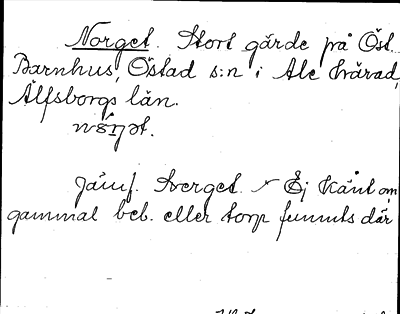 Norget. Stort gärde på Öst.
Barnhus, Östad s:n i Ale härad,
Älfsborgs län.
Jämf. Sverget. Ej känt om
gammal beb. eller torp funnits där